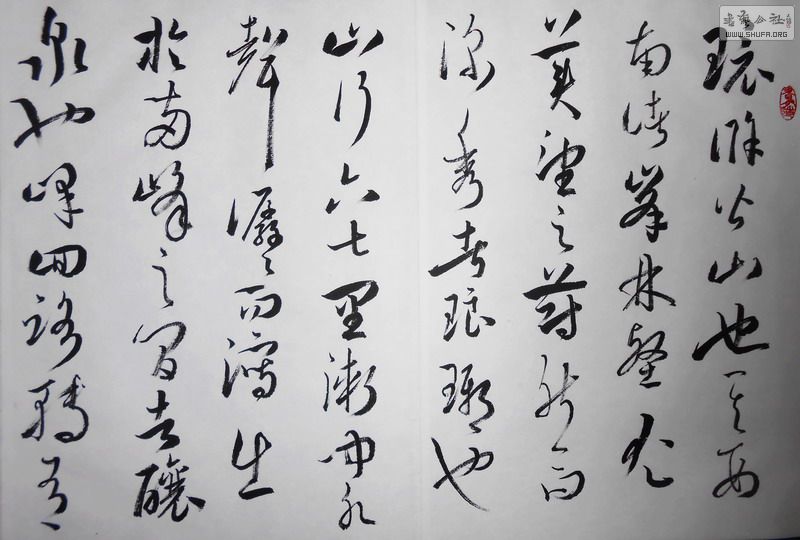 環滁皆山也其西
南諸峯林壑尤
美望之蔚然而
深秀者琅琊也
山行六七里漸聞水
聲潺々而瀉出
於兩峰之間者釀
泉也峰回路轉有
WWW.SHUFA.ORG